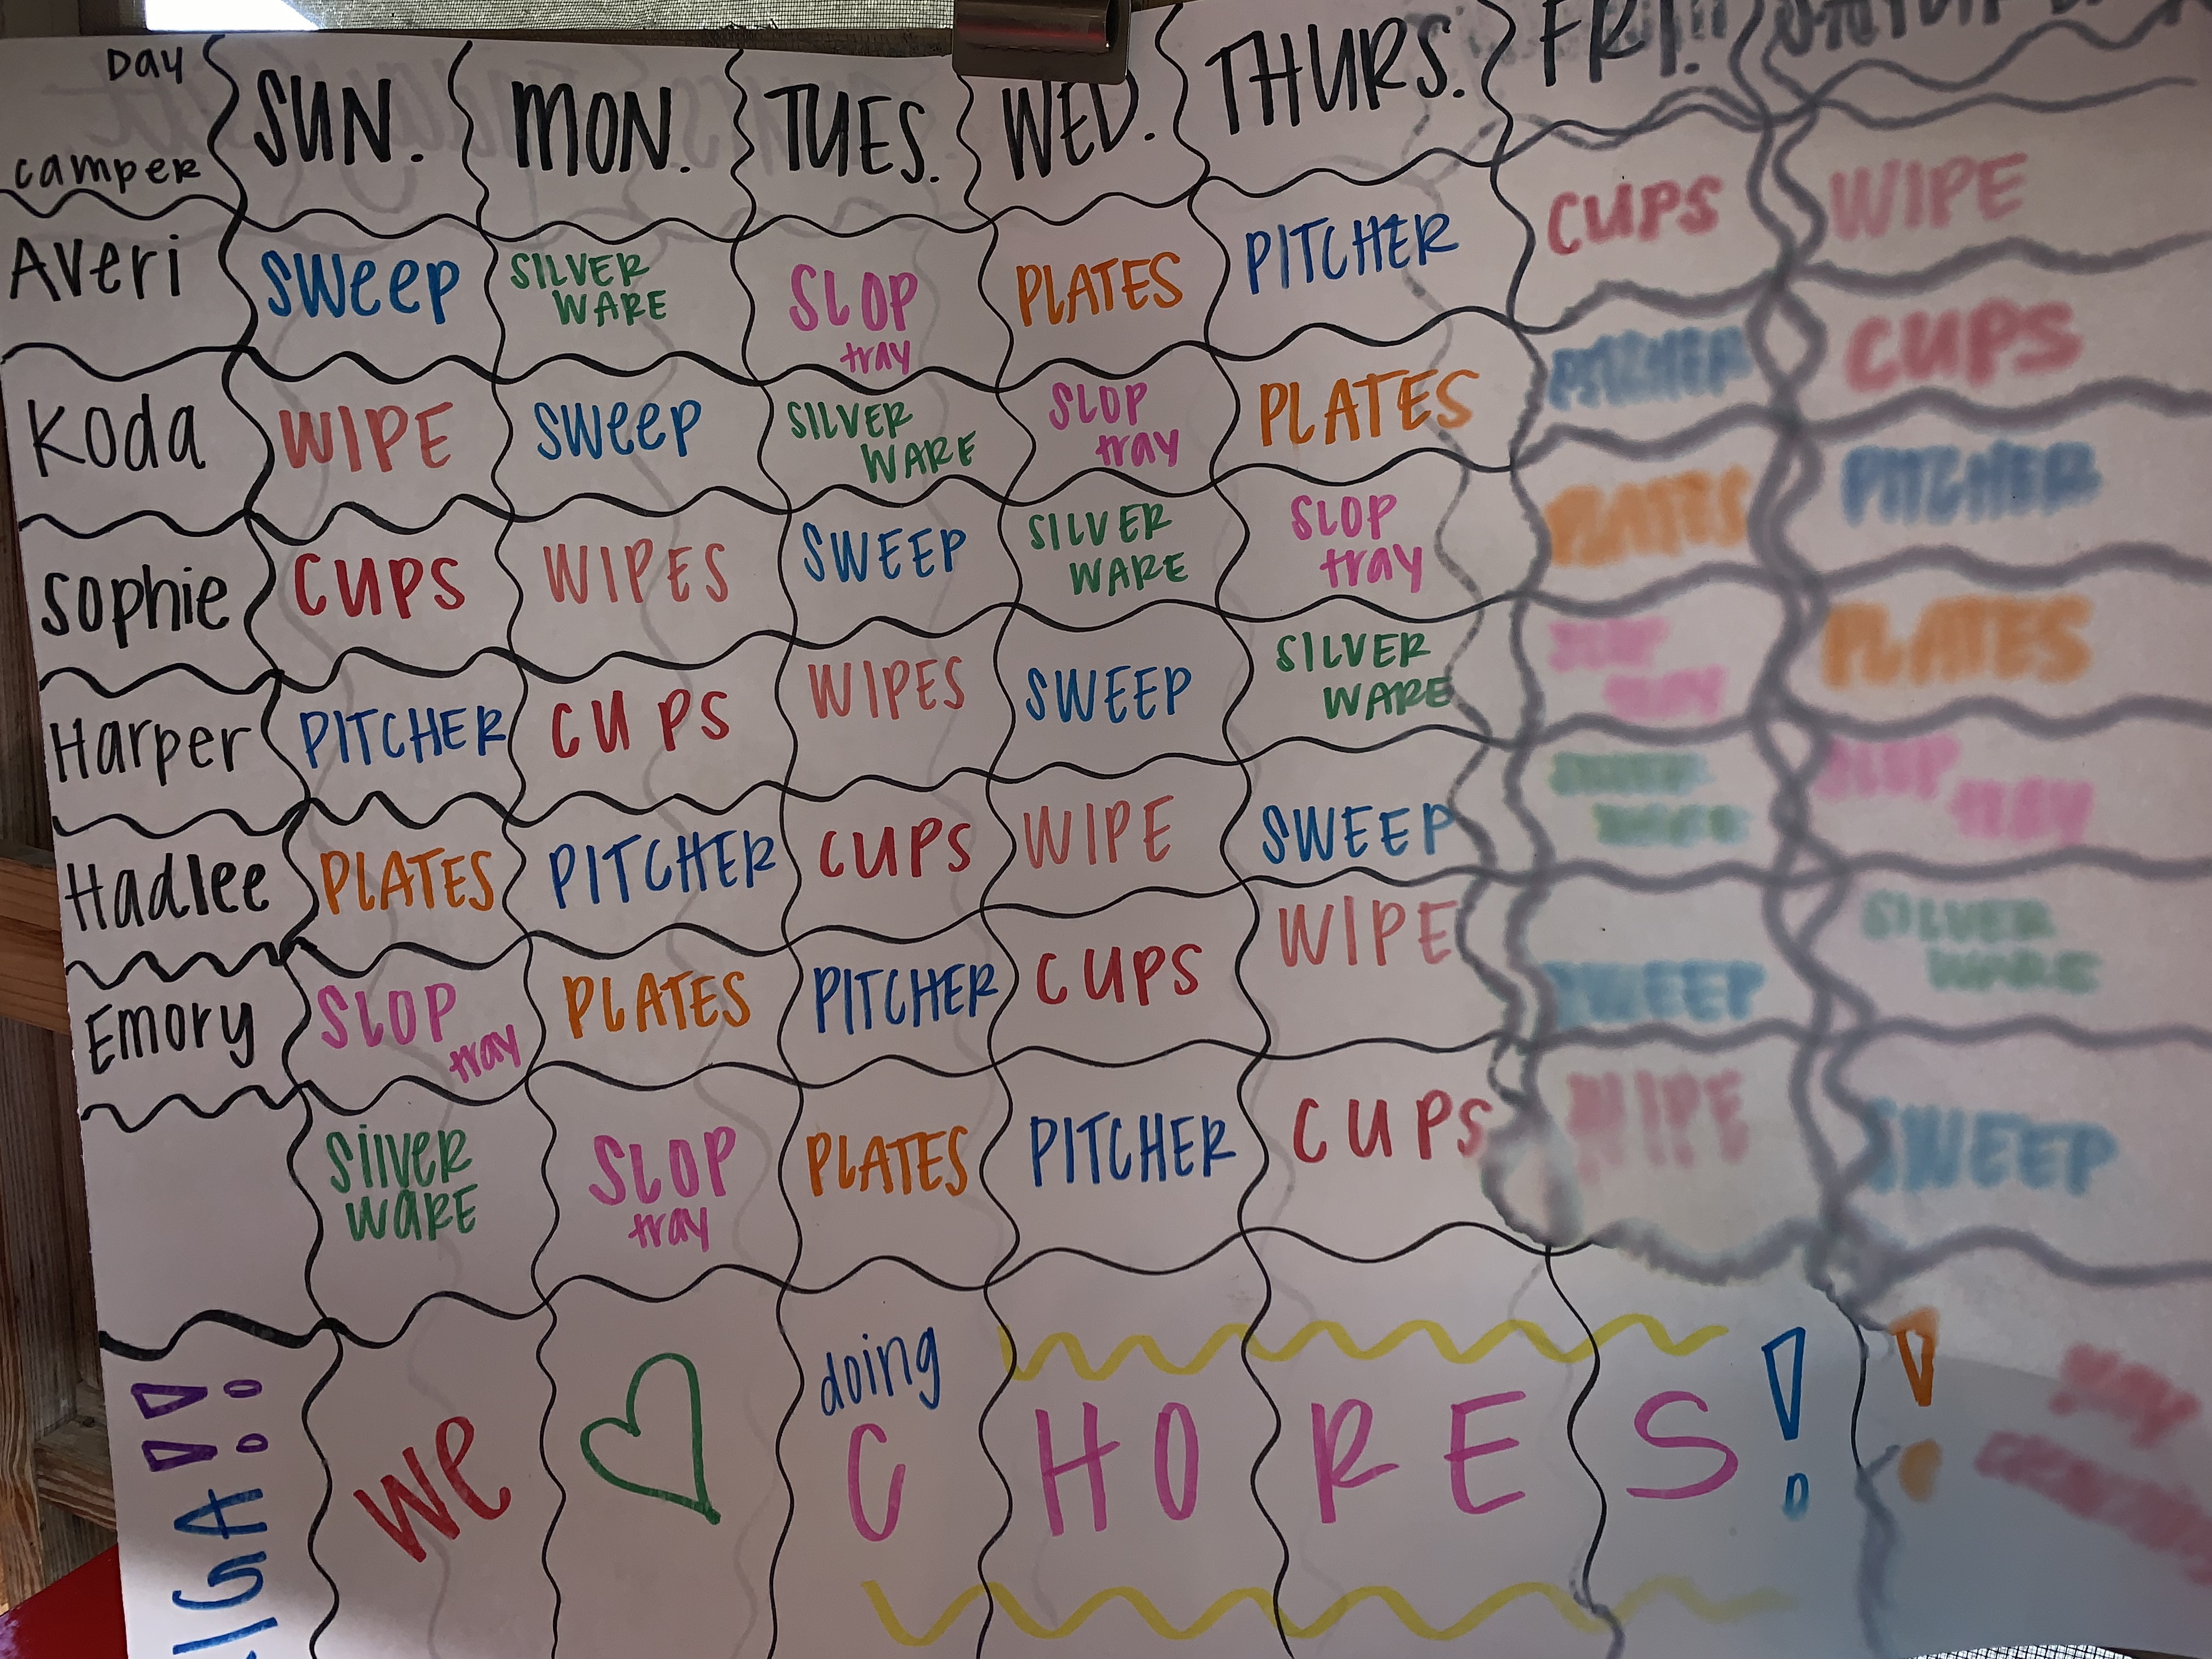 Day
camper
SUN.
MON.
TUES.
WED.
THURS.
FRI.
Averi
SWeep
SILVER
WARE
SLOP
tray
PLATES
PITCHER
CUPS
WIPE
Koda
WIPE
SWeep
SILVER
WARE
SLOP
tray
PLATES
PITCHER
CUPS
sophie
CUPS
WIPES
SWEEP
SILVER
WARE
SLOP
tray
PLATES
PITCHER
Harper
PITCHER
CUPS
WIPES
SWEEP
SILVER
WARE
SLOP
tray
PLATES
Hadlee
PLATES
PITCHER
CUPS
WIPE
SWEEP
SILVER
WARE
SLOP
tray
Emory
SLOP
tray
PLATES
PITCHER
CUPS
WIPE
SWEEP
SILVER
WARE
Silver
WaRE
SLOP
tray
PLATES
PITCHER
CUPS
WIPE
SWEEP
We
doing
CHORES!!